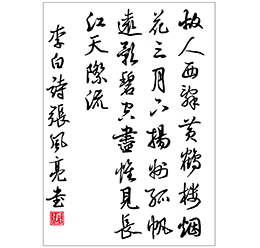 故人西辭黄鶴樓烟
花三月下揚州孤帆
遠影碧空盡惟見長
江天際流
李白詩張風亮書